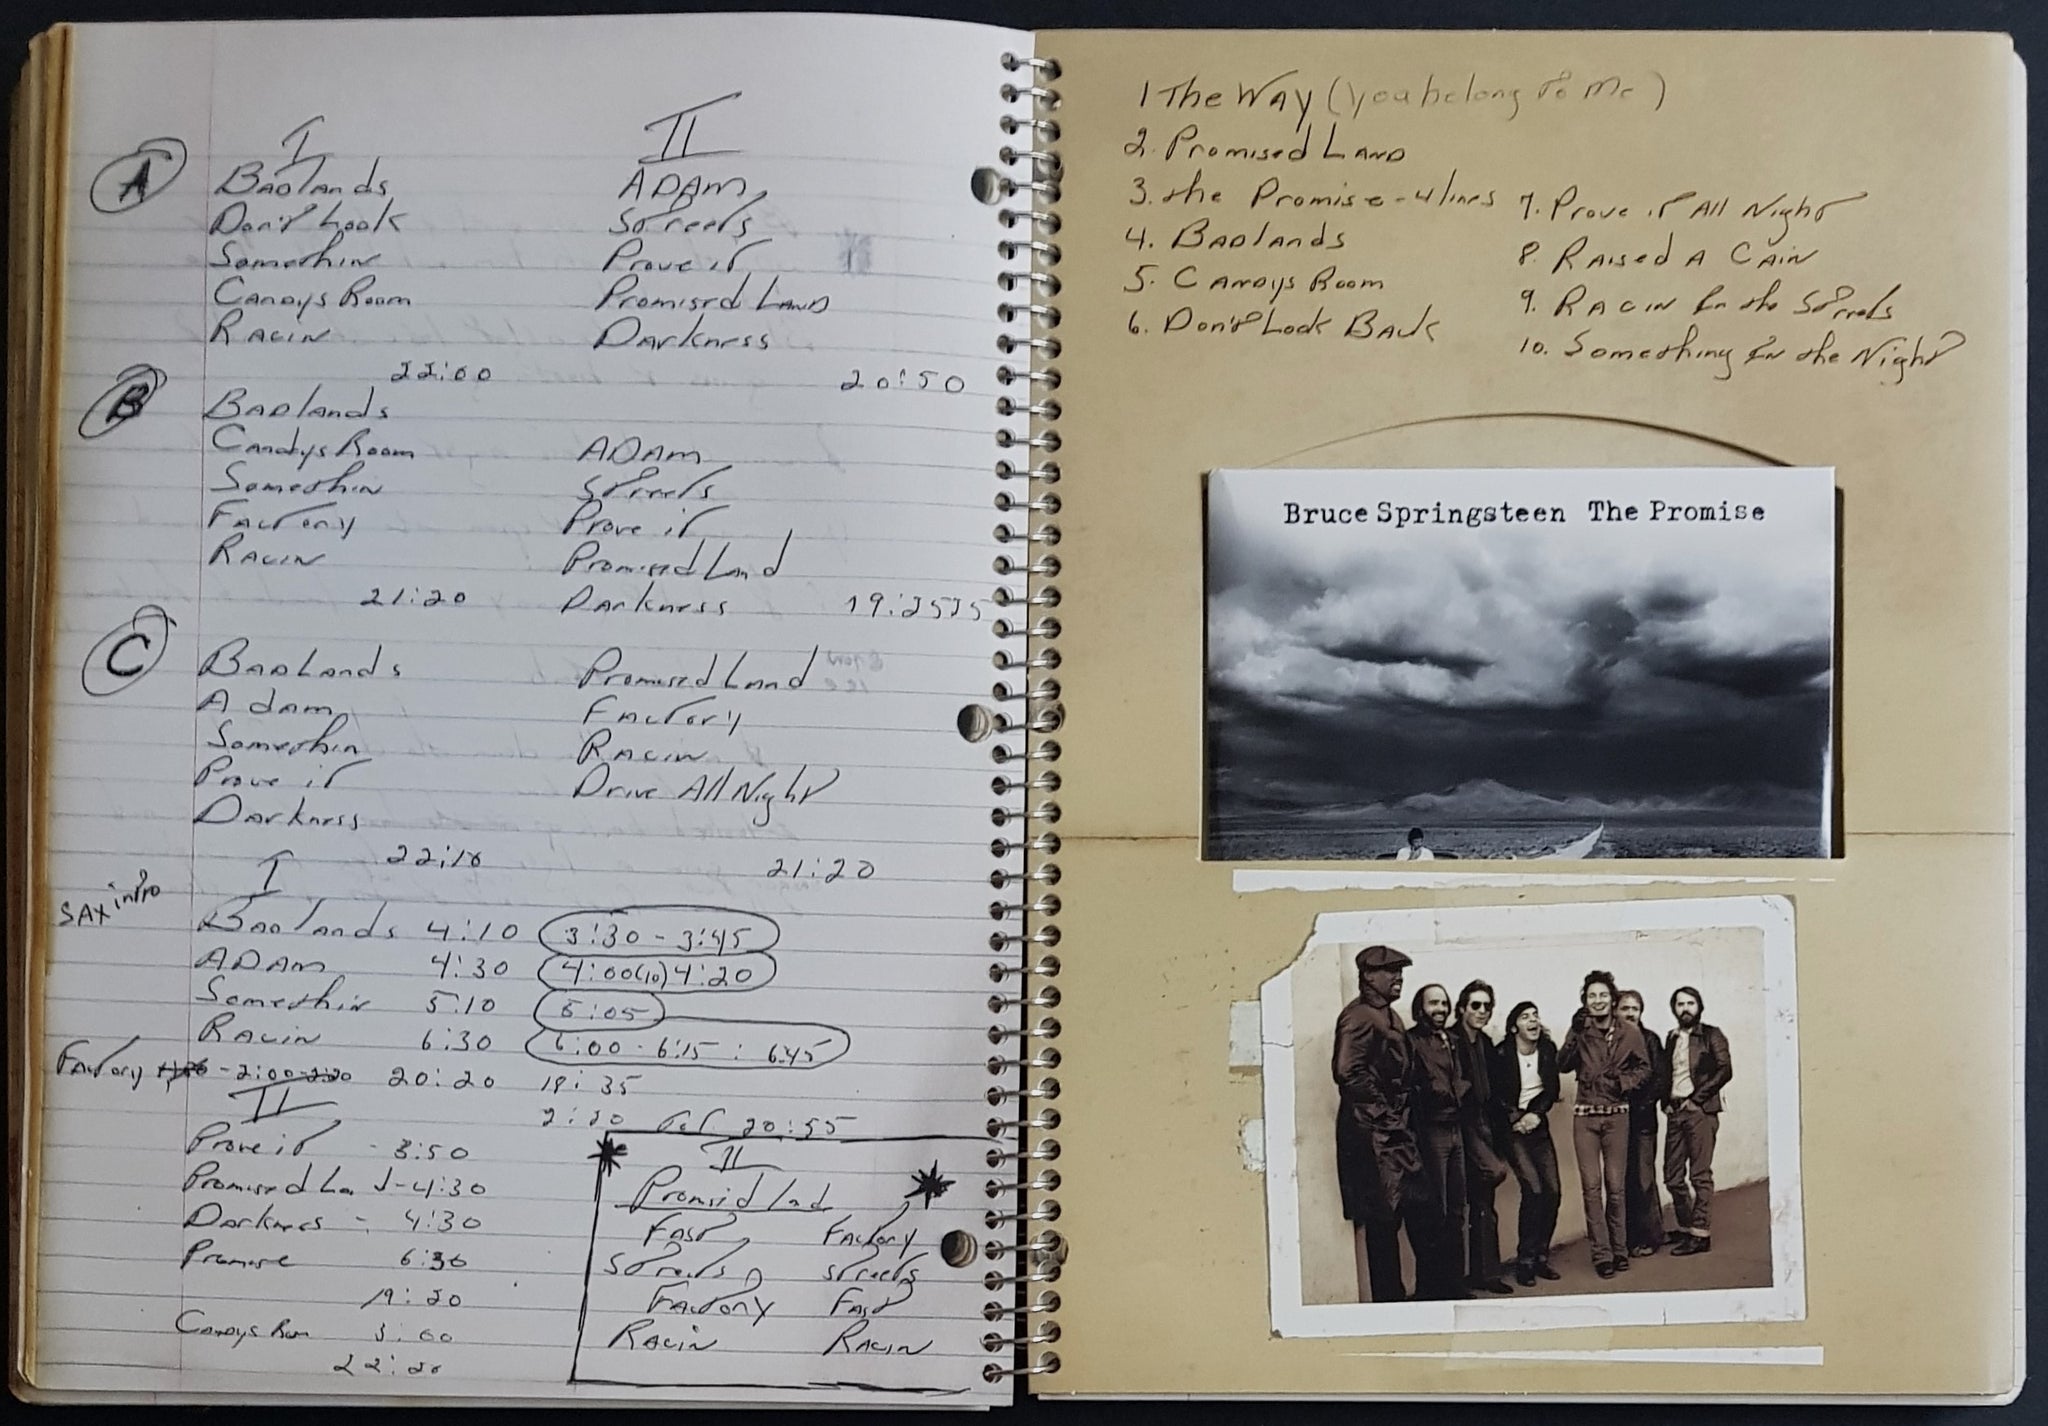 I II
A
Badlands ADAM
Don't Look Streets
Somethin Prove it
Candys Room Promised Land
Racin Darkness
22:00 20:50
B
Badlands
Candys Room ADAM
Somethin Streets
Factory Prove it
Racin Promised Land
21:20 Darkness 19:25
C
BadLands Promised Land
Adam Factory
Somethin Racin
Prove it Drive All Night
Darkness
22:10 21:20
I
SAX intro
Badlands 4:10 3:30 - 3:45
ADAM 4:30 4:00(10) 4:20
Somethin 5:10 5:05
Racin 6:30 6:00 - 6:15 : 6:45
Factory - 2:00-2:20 20:20 18:35
II
2:20 20:55
Prove it - 3:50
Promised Land - 4:30
Darkness - 4:30
Promise 6:30
19:20
Candys Room 3:00
22:20
II
Promised Land
Fast Factory
Streets Streets
Factory Fast
Racin Racin
1 The Way (you belong to Me)
2. Promised Land
3. the Promise - 4 lines
4. Badlands
5. Candys Room
6. Don't Look Back
7. Prove it All Night
8. Raised A Cain
9. Racin In the Streets
10. Something In the Night
Bruce Springsteen The Promise